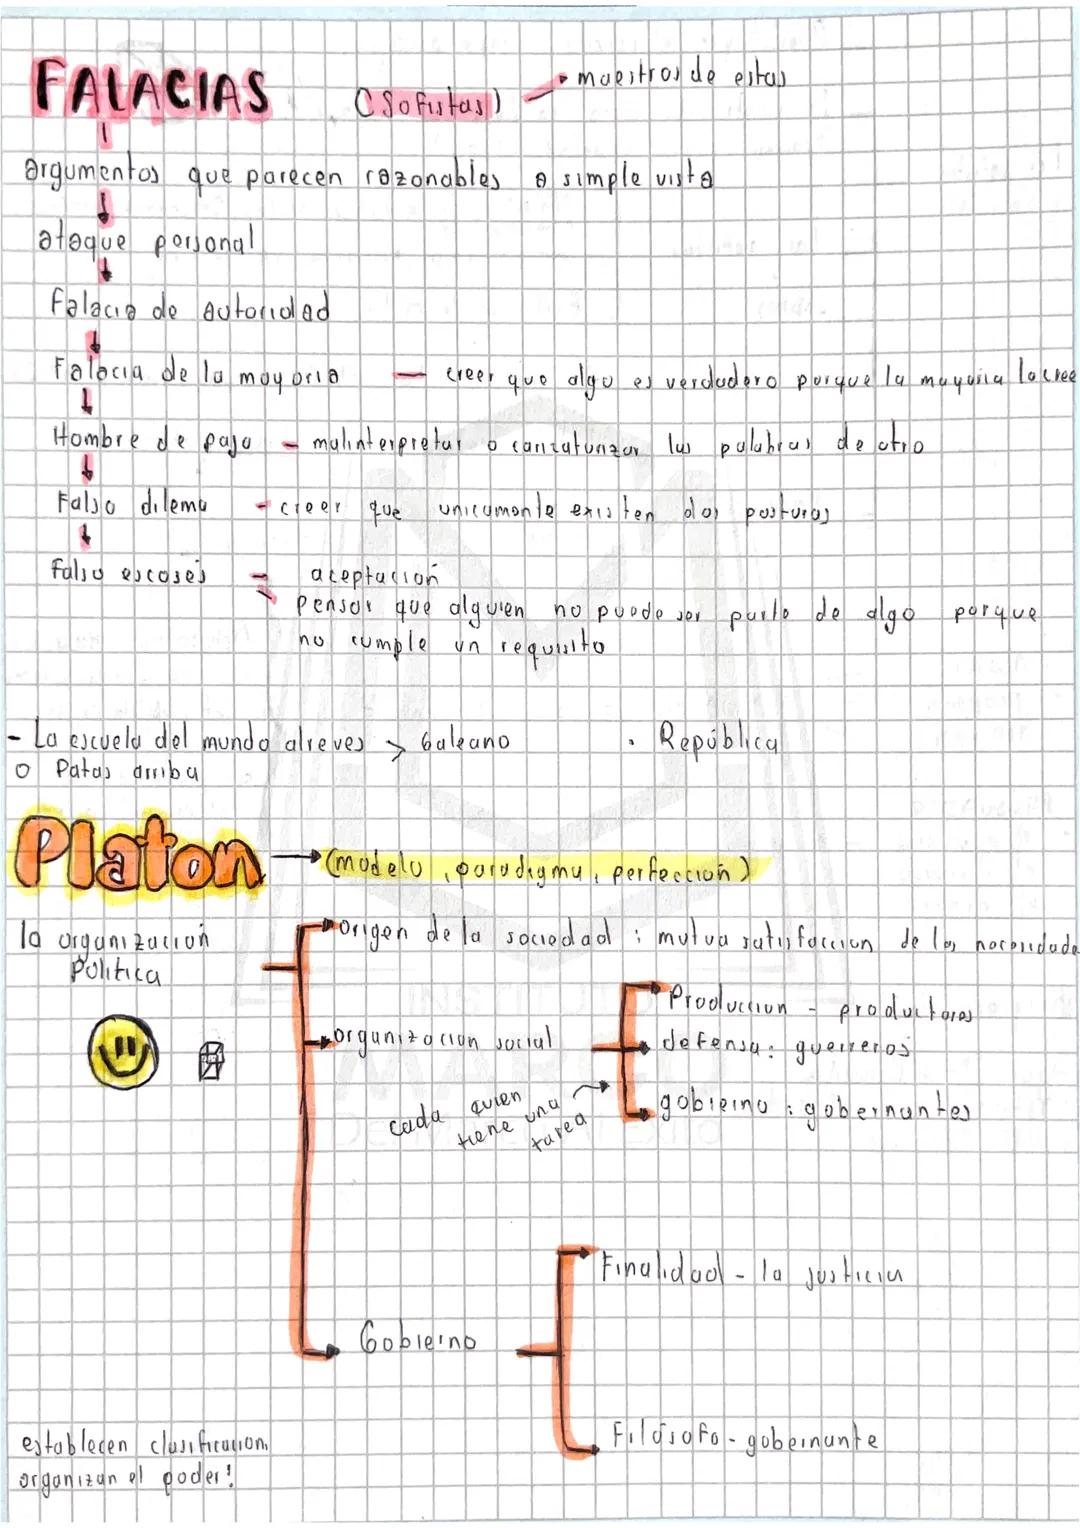 FALACIAS (Sofistas) maestros de estas
argumentos que parecen razonables a simple vista
ataque personal
Falacia de autoridad
Falacia de la mayoria — creer que algo es verdadero porque la mayoria lo cree
Hombre de paja - malinterpretar o caricaturizar las palabras de otro
Falso dilema - creer que unicamente existen dos posturas
Falso escosés - aceptación
pensar que alguien no puede ser parte de algo porque
no cumple un requisito
- La escuela del mundo alreves > Galeano
o Patas arriba
• República
Platon → (modelo, paradigma, perfección)
la organización
Política
origen de la sociedad : mutua satisfaccion de las necesidade
organizacion social
Produccion - productores
defensa: guerreros
gobierno : gobernantes
cada quien
tiene una
tarea
Gobierno
Finalidad - la justicia
Filósofo - gobernante
establecen clasificacion,
organizan el poder!